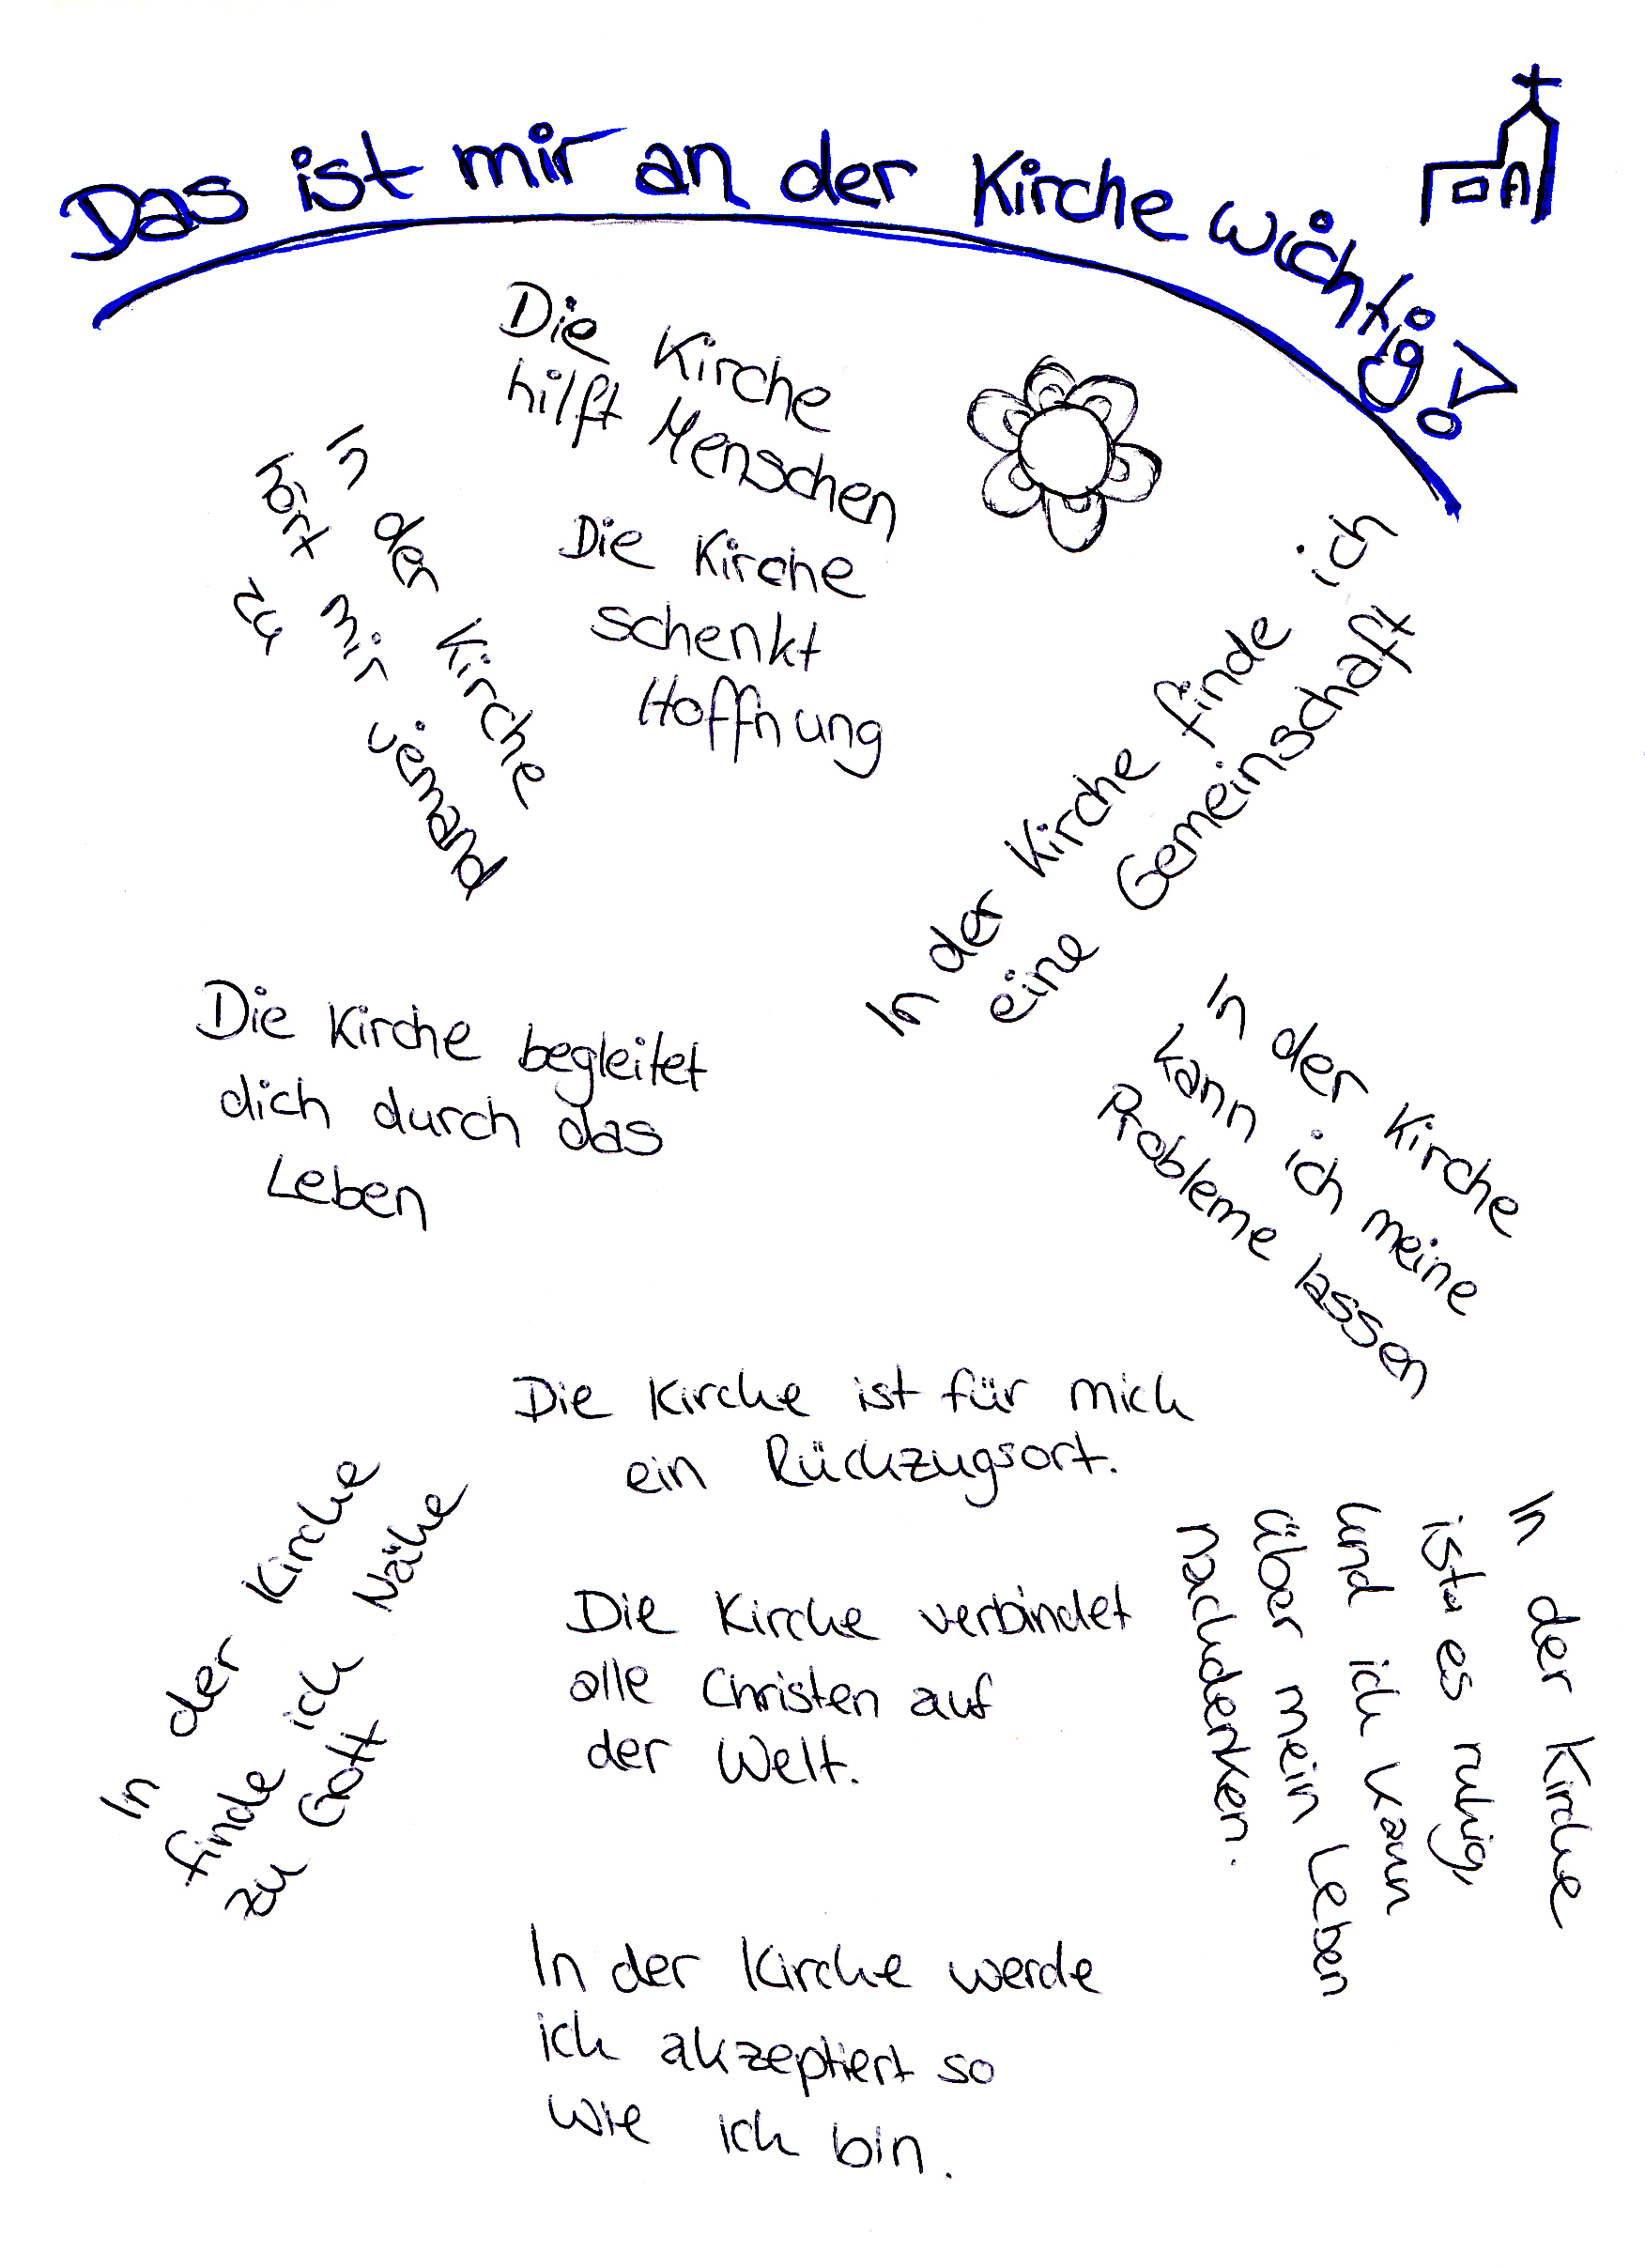 Das ist mir an der Kirche wichtig!
Die Kirche
hilft Menschen
In der Kirche
hört mir jemand
zu
Die Kirche
schenkt
Hoffnung
In der Kirche finde ich
eine Gemeinschaft
Die Kirche begleitet
dich durch das
Leben
In der Kirche
kann ich meine
Probleme lassen
Die Kirche ist für mich
ein Rückzugsort.
In der Kirche
finde ich Nähe
zu Gott
Die Kirche verbindet
alle Christen auf
der Welt.
In der Kirche
ist es ruhig,
und ich kann
über mein Leben
nachdenken.
In der Kirche werde
ich akzeptiert so
wie ich bin.